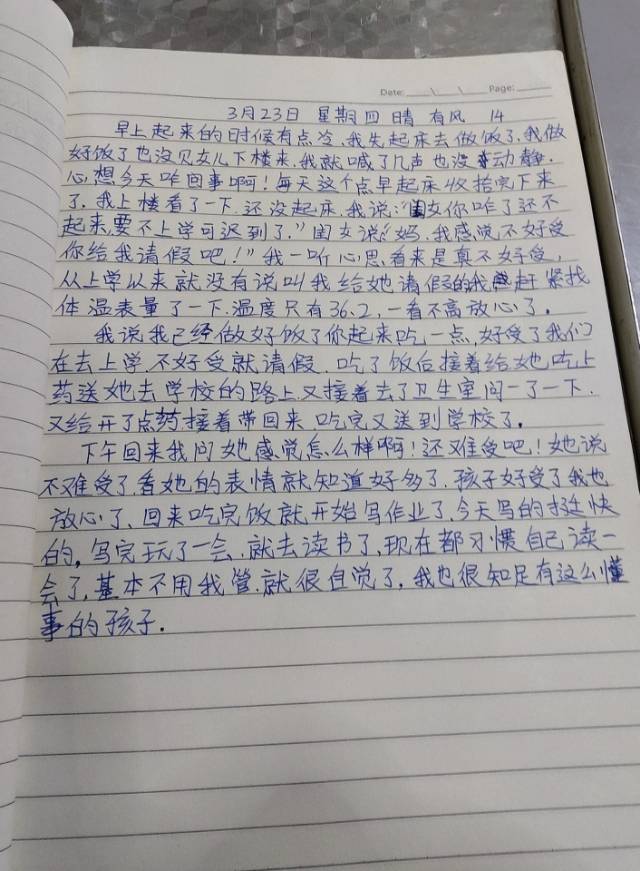 Date: \ \ Page:
3月23日 星期四 晴 有风 14
早上起来的时候有点冷.我先起床去做饭了.我做
好饭了也没见女儿下楼来.我就喊了几声也没动静.
心想今天咋回事啊！每天这个点早起床收拾完下来
了.我上楼看了一下.还没起床.我说:"闺女你咋了还不
起来,要不上学可迟到了."闺女说:"妈.我感觉不好受
你给我请假吧！"我一听心思.看来是真不好受,
从上学以来就没有说叫我给她请假的我赶紧找
体温表量了一下.温度只有36.2,一看不高放心了.
我说我已经做好饭了你起来吃一点,好受了我们
在去上学.不好受就请假.吃了饭后接着给她吃上
药送她去学校的路上.又接着去了卫生室问一了一下.
又给开了点药接着带回来吃完又送到学校了.
下午回来我问她感觉怎么样啊！还难受吧！她说
不难受了.看她的表情就知道好多了.孩子好受了我也
放心了.回来吃完饭就开始写作业了.今天写的挺快
的,写完玩了一会.就去读书了.现在都习惯自己读一
会了,基本不用我管.就很自觉了.我也很知足有这么懂
事的孩子.